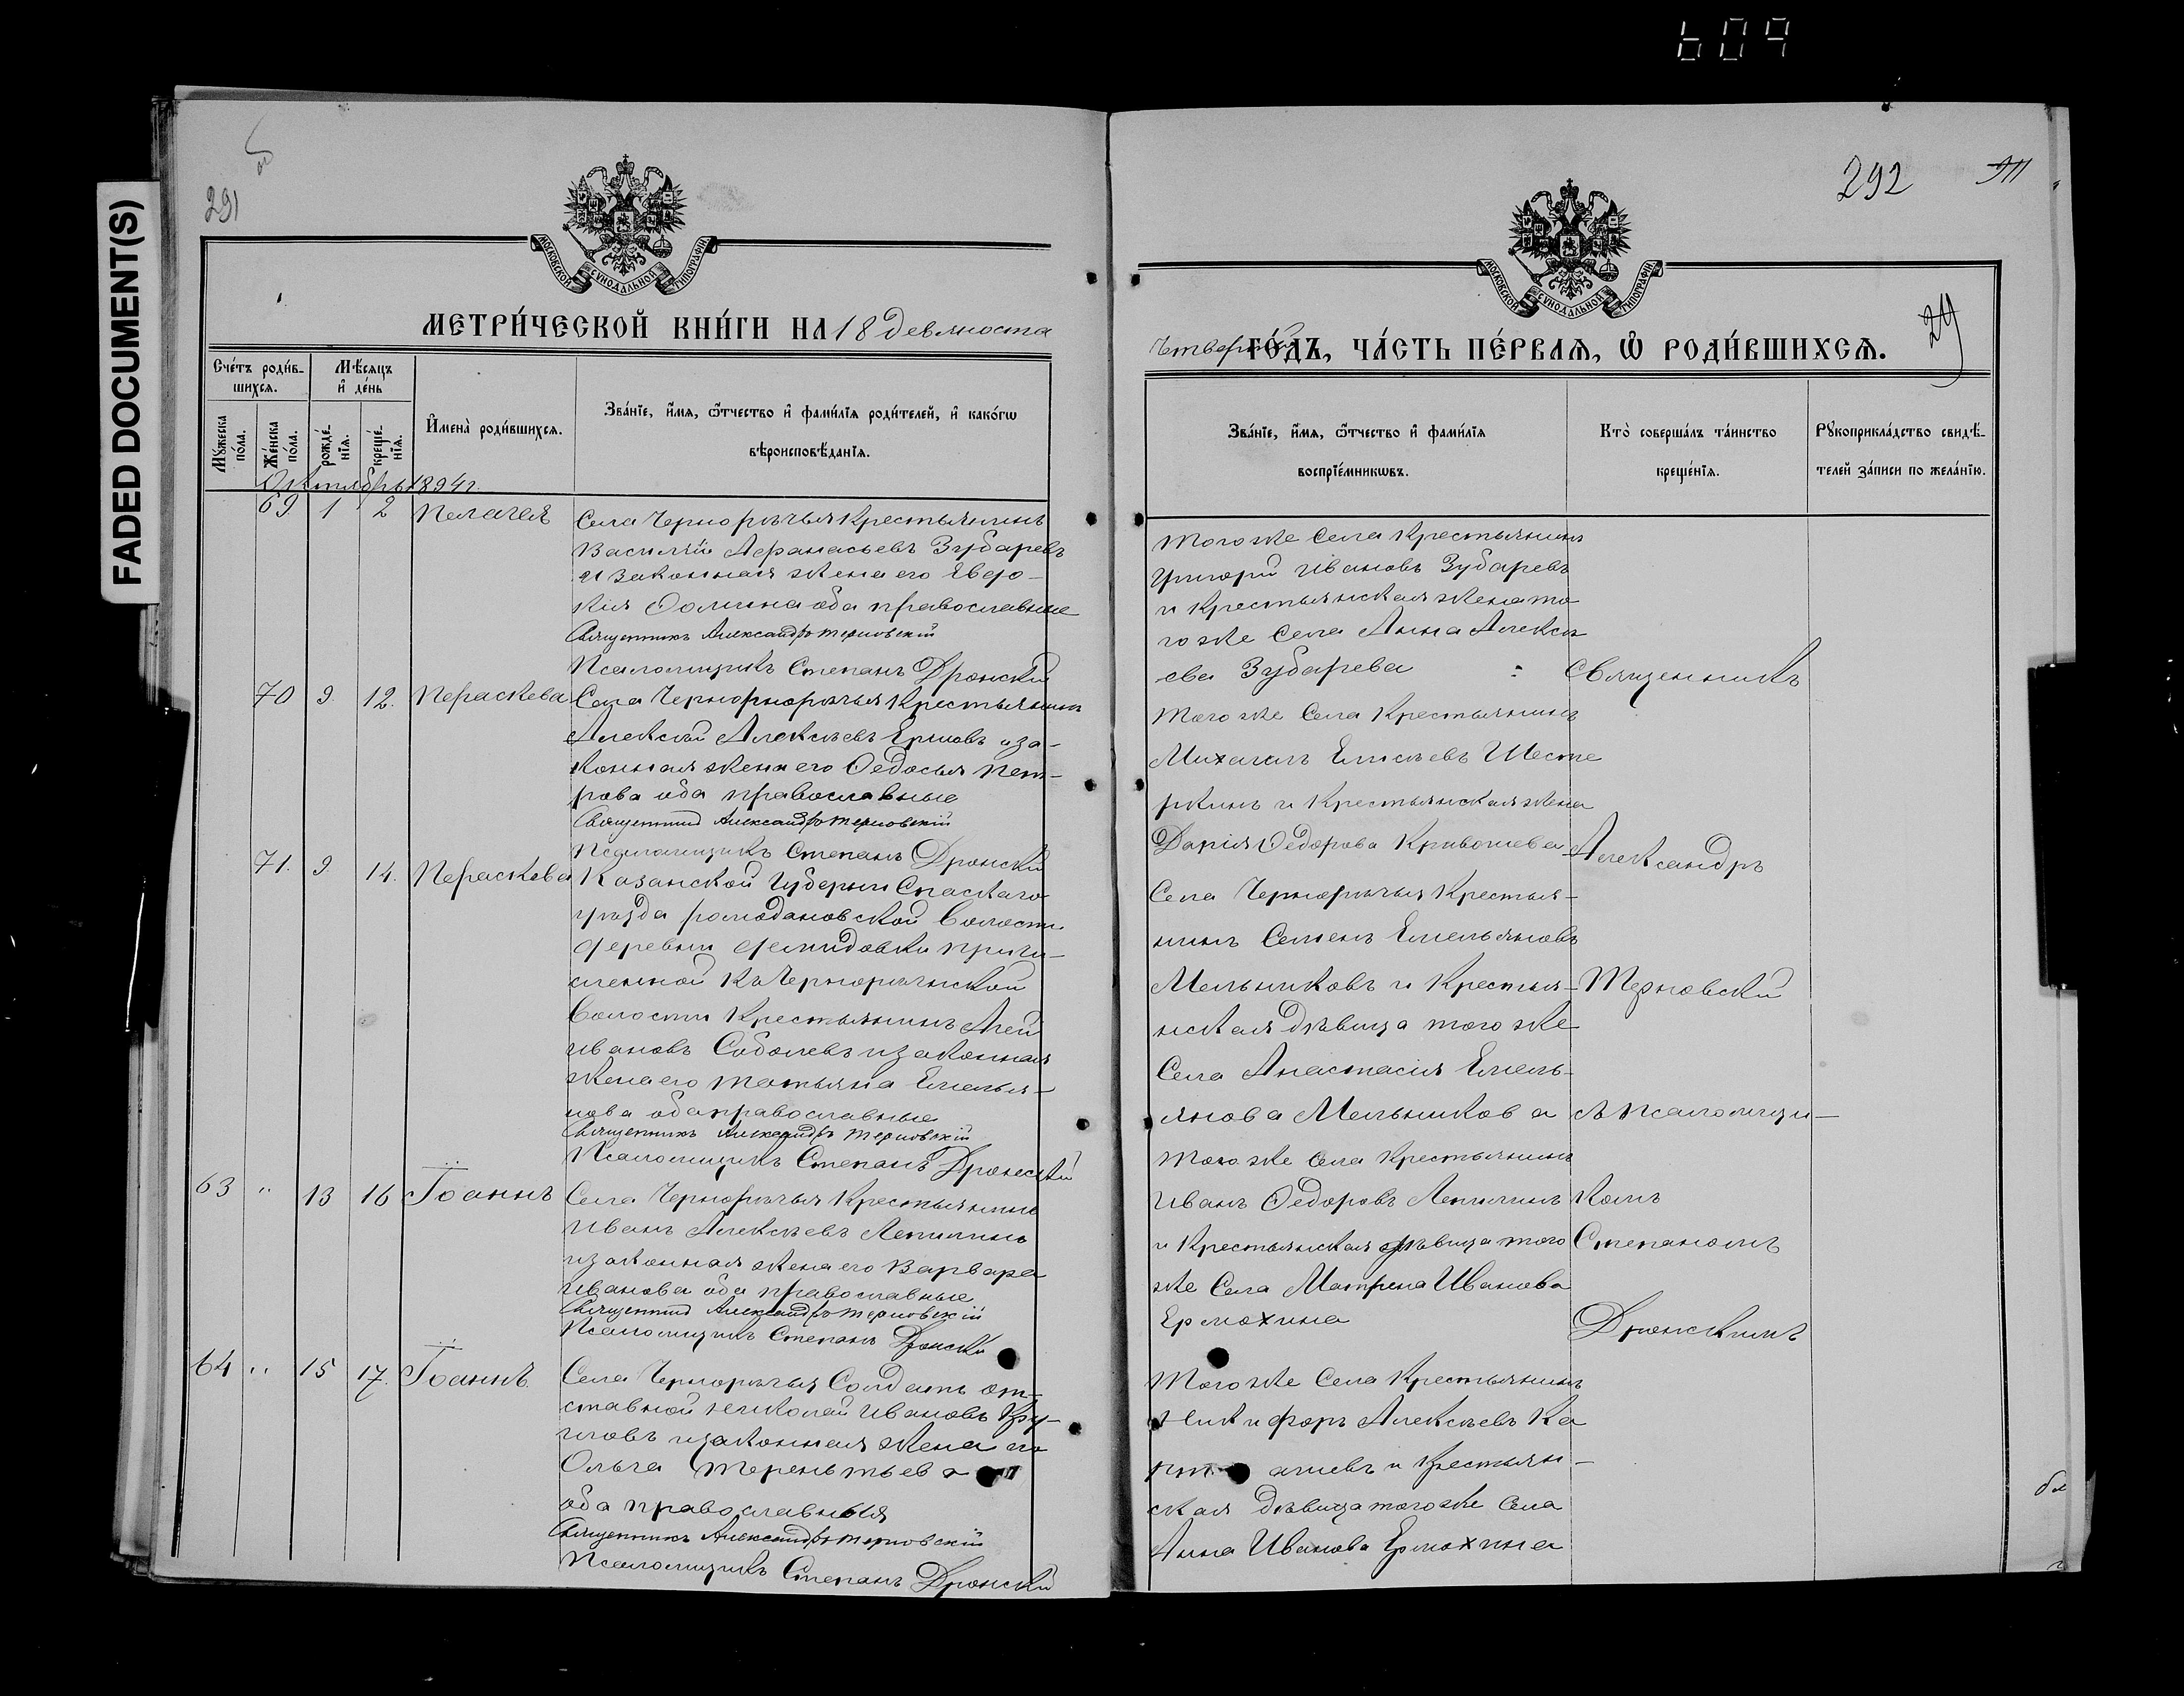 609
FADED DOCUMENT(S)
291
МОСКОВСКОЙ СѴНОДАЛЬНОЙ ТИПОГРАФІИ
МЕТРИ́ЧЕСКОЙ КНИ́ГИ НА 18 девяноста
Сче́тъ роди́в-
шихся.
Мѣ́сяцъ
и҆ де́нь
Мꙋ́жеска
по́ла.
Же́нска
по́ла.
рожде́-
нїѧ.
креще́-
нїѧ.
И҆мена̀ роди́вшихсѧ.
Зва́нїе, и҆́мѧ, ѻ҆́тчество и҆ фами́лїѧ роди́телей, и҆ како́гѡ
вѣроисповѣ́данїѧ.
Октябрь 1894 г.
69. 1 2 Пелагея
Села Чернорѣчья Крестьянинъ
Василій Афанасьевъ Зубаревъ
и законная жена его Евдо-
кія Фомина оба православные
Священникъ Александръ Терновскій
Псаломщикъ Степанъ Дронскій
70 9. 12. Параскева
Села Чернорнорѣчья Крестьянинъ
Алексѣй Алексѣевъ Ершовъ и за-
конная жена его Федосья Пет-
рова оба православные
Священникъ Александръ Терновскій
Псаломщикъ Степанъ Дронскій
71. 9. 14. Параскева
Казанской Губерніи Спаскаго
уѣзда ромодановской Волости
деревни демидовки причи-
сленной къ Чернорѣчинской
Волости Крестьянинъ Агей
Ивановъ Соболевъ и законная
жена его Татьяна Емелья-
нова оба православные
Священникъ Александръ Терновскій
Псаломщикъ Степанъ Дронскій
63 " 13 16 Іоаннъ
Села Чернорѣчья Крестьянинъ
Иванъ Алексѣевъ Лепилинъ
и законная жена его Варвара
Иванова оба православные
Священникъ Александръ Терновскій
Псаломщикъ Степанъ Дронскій
64 " 15 17. Іоаннъ.
Села Чернорѣчья Солдатъ от-
ставной Николай Ивановъ Кру-
гловъ и законная жена его
Ольга Терентьева
оба православныя
Священникъ Александръ Терновскій
Псаломщикъ Степанъ Дронскій
292
29
МОСКОВСКОЙ СѴНОДАЛЬНОЙ ТИПОГРАФІИ
Четвертый ГО́ДЪ, ЧА́СТЬ ПЕ́РВАѦ, Ѽ РОДИ́ВШИХСѦ.
Зва́нїе, и҆́мѧ, ѻ҆́тчество и҆ фами́лїѧ
воспрїе́мникѡвъ.
Кто̀ соверша́лъ та́инство
креще́нїѧ.
Рꙋкоприкла́дство свидѣ́-
телей за́писи по жела́нїю.
Того же Села Крестьянинъ
Григорій Ивановъ Зубаревъ
и Крестьянская жена то
го же Села Анна Алексѣ
ева Зубарева
того же Села Крестьянинъ
Михаилъ Елисѣевъ Шесте
ркинъ и Крестьянская жена
Дарія Федорова Кривошеева
Села Чернорѣчья Крестья-
нинъ Семенъ Емельяновъ
Мельниковъ и Крестья-
нская дѣвица того же
Села Анастасія Емель-
янова Мельникова
Того же Села Крестьянинъ
Иванъ Федоровъ Лепилинъ
и Крестьянская дѣвица того
же Села Матрена Иванова
Ермохина
Того же Села Крестьянинъ
Никифоръ Алексѣевъ Ка
ашевъ и Крестьян-
ская дѣвица того же Села
Анна Иванова Ермохина
Священникъ
Александръ
Терновскій
съ псаломщи-
комъ
Степаномъ
Дронскимъ